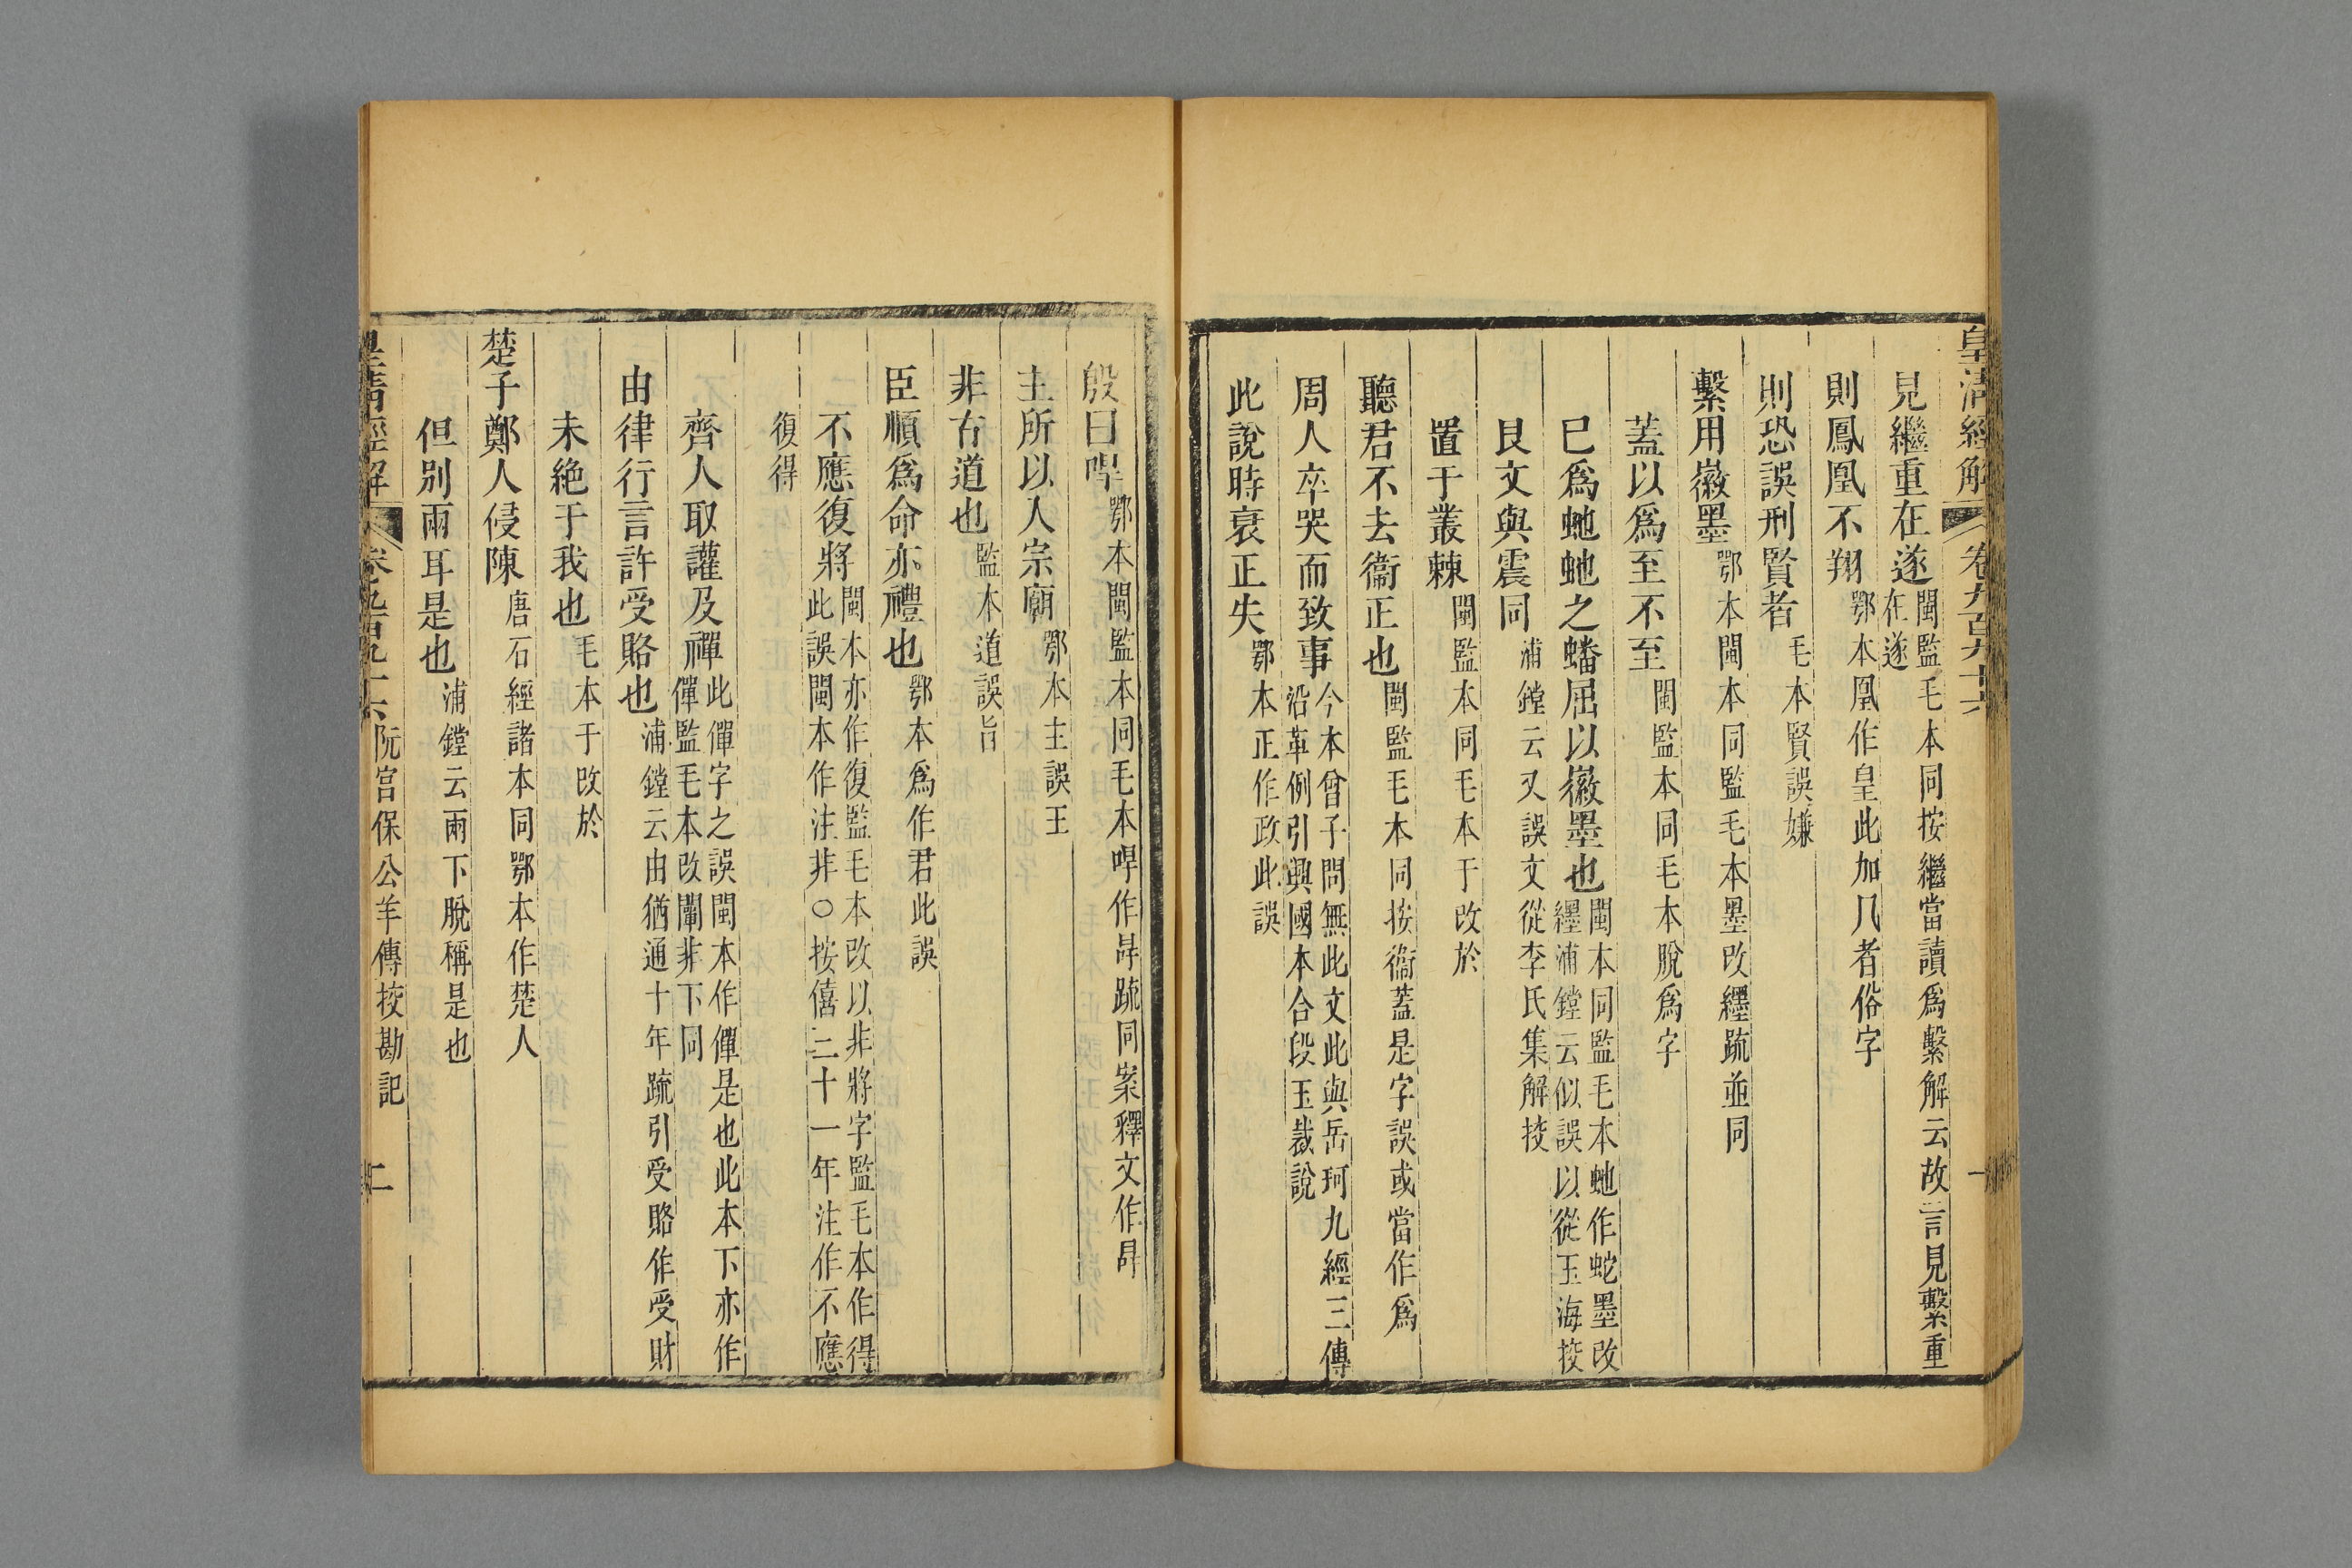 皇清經解 卷九百九十六 一
見繼重在遂閩監毛本同按繼當讀爲繫解云故言見繫重在遂
則鳳凰不翔鄂本凰作皇此加几者俗字
則恐誤刑賢者毛本賢誤嫌
繫用徽墨鄂本閩本同監毛本墨改纆疏並同
蓋以爲至不至閩監本同毛本脫爲字
巳爲虵虵之蟠屈以徽墨也閩本同監毛本虵作蛇墨改纆浦鏜云似誤以從玉海挍
艮文與震同浦鏜云又誤文從李氏集解挍
置于叢棘閩監本同毛本于改於
聽君不去衞正也閩監毛本同按衞蓋是字誤或當作爲
周人卒哭而致事今本曾子問無此文此與岳珂九經三傳沿革例引興國本合段玉裁說
此說時衰正失鄂本正作政此誤
殷曰哻鄂本閩監本同毛本哻作冔疏同案釋文作冔
主所以入宗廟鄂本主誤王
非古道也監本道誤旨
臣順爲命亦禮也鄂本爲作君此誤
不應復將閩本亦作復監毛本改以非將字監毛本作得此誤閩本作注非○按僖二十一年注作不應
復得
齊人取讙及禪此僤字之誤閩本作僤是也此本下亦作僤監毛本改闡非下同
由律行言許受賂也浦鏜云由猶通十年疏引受賂作受財
未絶于我也毛本于改於
楚子鄭人侵陳唐石經諸本同鄂本作楚人
但別兩耳是也浦鏜云兩下脫稱是也
皇清經解 卷九百九十六 阮宮保公羊傳挍勘記 二